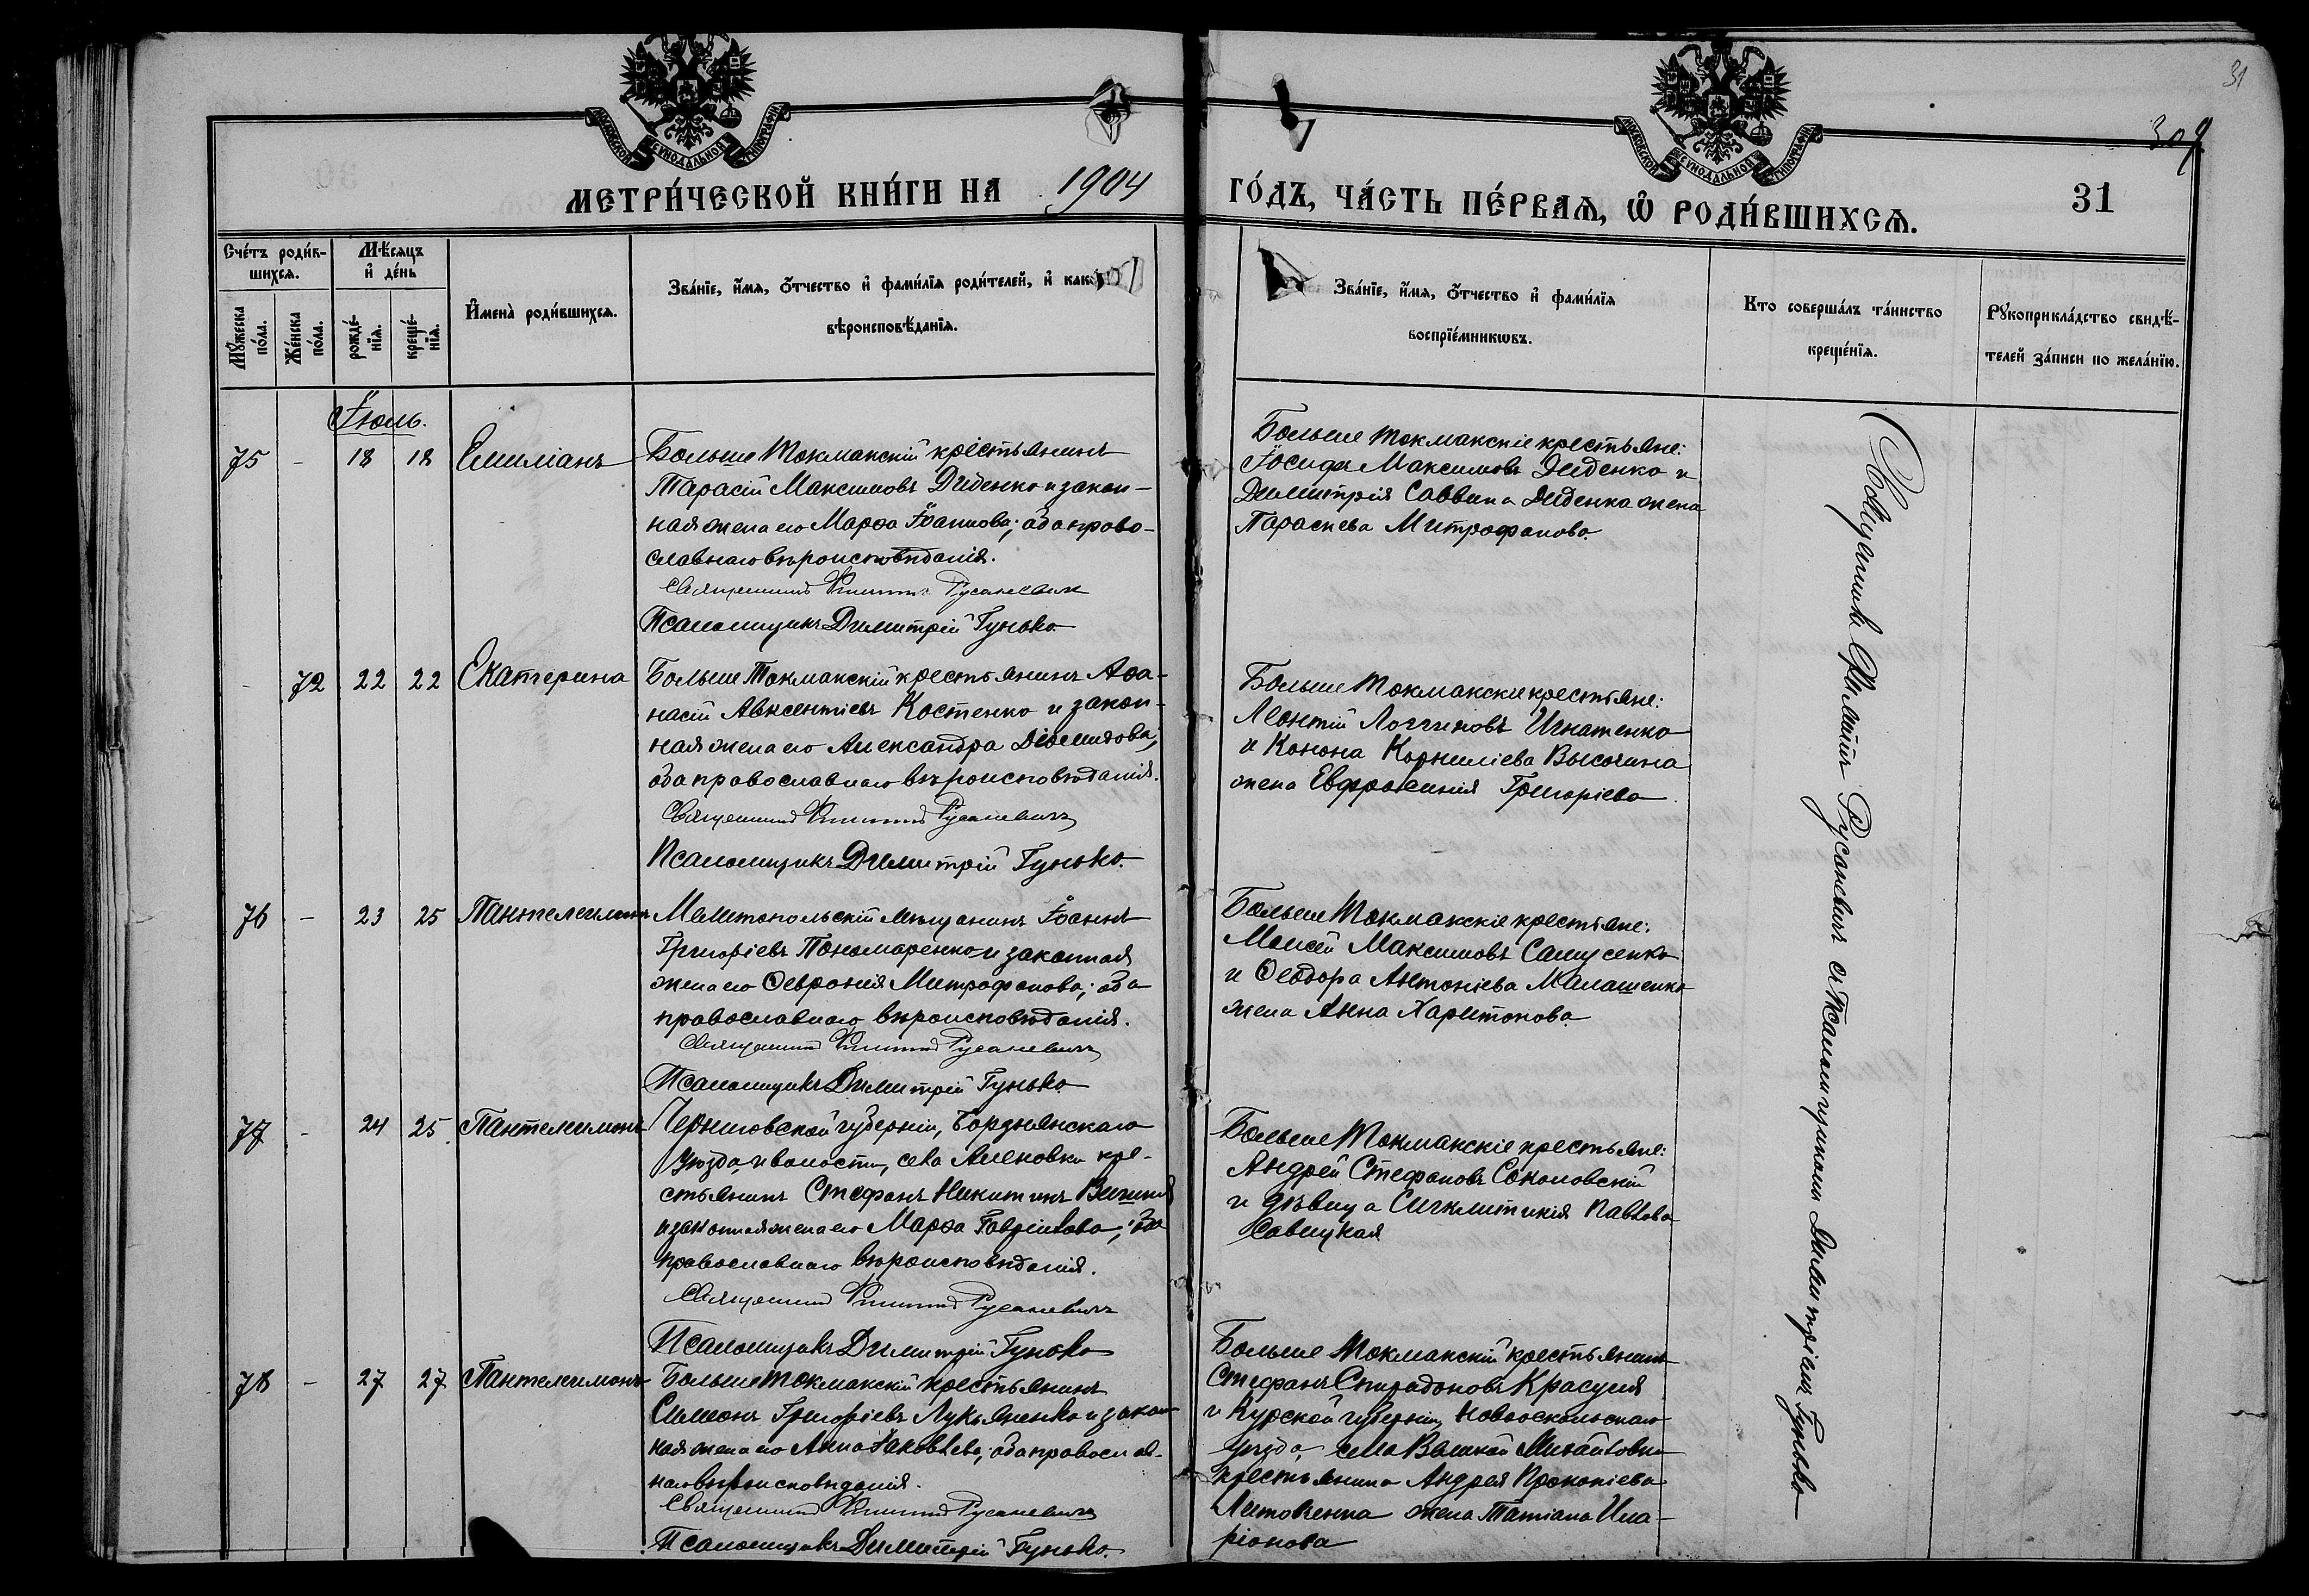 31
309
МОСКОВСКОЙ СѴНОДАЛЬНОЙ ТИПОГРАФІИ
МОСКОВСКОЙ СѴНОДАЛЬНОЙ ТИПОГРАФІИ
МЕТРИ́ЧЕСКОЙ КНИ́ГИ НА 1904
ГО́ДЪ, ЧА́СТЬ ПЕ́РВАѦ, Ѡ҆ РОДИ́ВШИХСѦ.
31
Сче́тъ роди́в-
шихсѧ.
Мѣ́сѧцъ
и҆ де́нь
Мꙋ́жеска по́ла.
Же́нска по́ла.
рожде́-
нїѧ.
креще́-
нїѧ.
И҆мена̀ роди́вшихсѧ.
Зва́нїе, и҆́мѧ, ѻ҆́тчество и҆ фами́лїѧ роди́телей, и҆ како́
вѣроисповѣ́данїѧ.
Зва́нїе, и҆́мѧ, ѻ҆́тчество и҆ фами́лїѧ
воспрїе́мникѡвъ.
Кто соверша́лъ та́инство
креще́нїѧ.
Рꙋкоприкла́дство свидѣ́-
телей за́писи по жела́нїю.
Іюль.
75 - 18 18 Емиліанъ
Больше Токмакскій крестьянинъ
Тарасій Максимовъ Дѣденко и закон-
ная жена его Марѳа Іоаннова; оба право-
славнаго вѣроисповѣданія.
Священникъ Филиппъ Русаневичъ
Псаломщикъ Димитрій Гунько.
Больше Токмакскіе крестьяне:
Іосифъ Максимовъ Дѣденко и
Димитрія Саввина Дѣденка жена
Параскева Митрофанова.
- 72 22 22 Екатерина
Больше Токмакскій крестьянинъ Аѳа-
насій Авксентіевъ Костенко и закон-
ная жена его Александра Діомидова;
оба православнаго вѣроисповѣданія.
Священникъ Филиппъ Русаневичъ
Псаломщикъ Димитрій Гунько.
Больше Токмакскіе крестьяне:
Леонтій Логгиновъ Игнатенко
и Конона Корниліева Высочина
жена Евфросинія Григоріева.
76 - 23 25 Пантелеимонъ
Мелитопольскій мѣщанинъ Іоаннъ
Григоріевъ Пономаренко и законная
жена его Ѳевронія Митрофанова; оба
православнаго вѣроисповѣданія.
Священникъ Филиппъ Русаневичъ
Псаломщикъ Димитрій Гунько
Больше Токмакскіе крестьяне:
Моисей Максимовъ Самусенко
и Ѳеодора Антоніева Малашенко
жена Анна Харитонова.
77 - 24 25 Пантелеимонъ
Черниговской губерніи, Борзнянскаго
уѣзда, и волости, села Оленовки кре-
стьянинъ Стефанъ Никитинъ
и законная жена его Марѳа Гавріилова; оба
православнаго вѣроисповѣданія.
Священникъ Филиппъ Русаневичъ
Псаломщикъ Димитрій Гунько
Больше Токмакскіе крестьяне:
Андрей Стефановъ Соколовскій
и дѣвица Синклитикія Павлова
Савицкая
78 - 27 27 Пантелеимонъ
Больше Токмакскій крестьянинъ
Симеонъ Григоріевъ Лукьяненко и закон-
ная жена его Анна Іаковлева; оба правосла-
наго вѣроисповѣданія.
Священникъ Филиппъ Русаневичъ
Псаломщикъ Димитрій Гунько.
Больше Токмакскій крестьянинъ
Стефанъ Спиридоновъ Красуля
и Курской губерніи, Новооскольскаго
уѣзда, села Великой Михайловки
крестьянина Андрея Прокопіева
жена Татіана Ила-
ріонова
Священникъ Филиппъ Русаневичъ съ Псаломщикомъ Димитріемъ Гунько